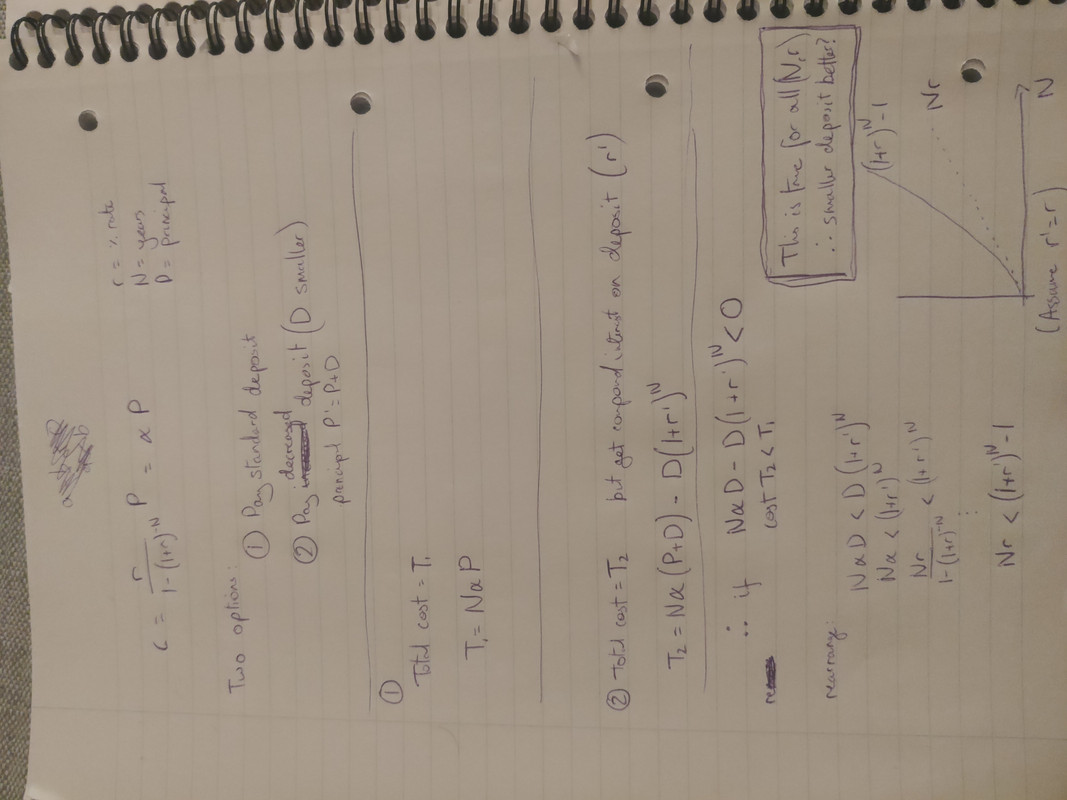 r = % rate
N = years
P = principal
c = r / (1 - (1+r)^-N) P = αP
Two options:
① Pay standard deposit
② Pay decreased deposit (D smaller)
principal P' = P+D
①
Total cost = T₁
T₁ = NαP
② Total cost = T₂ but get compound interest on deposit (r')
T₂ = Nα(P+D) - D(1+r')^N
∴ if NαD - D(1+r')^N < 0
cost T₂ < T₁
rearrange:
NαD < D(1+r')^N
Nα < (1+r')^N
Nr / (1-(1+r)^-N) < (1+r')^N
⋮
Nr < (1+r')^N - 1
This is true for all (N, r)
∴ smaller deposit better?
(1+r)^N - 1
Nr
N
(Assume r' = r)